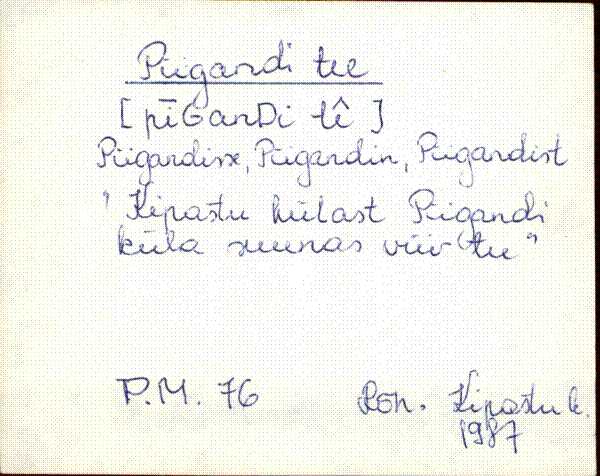 Piigandi tee
[pīGanDi tê]
Piigandisse, Piigandin, Piigandist
"Kipastu külast Piigandi
küla suunas viiv tee"
P.M. 76 Rön. Kipastu k.
1987